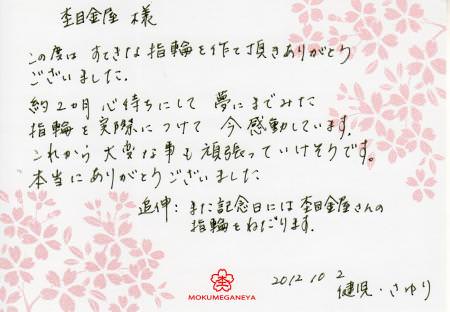 杢目金屋 様
この度は すてきな指輪を作て頂きありがとう
ございました.
約2ヵ月 心待ちにして 夢にまでみた
指輪を実際につけて 今感動しています.
これから 大変な事も頑張っていけそうです。
本当にありがとうございました
追伸: また記念日には杢目金屋さんの
指輪をねだります.
2012.10 2
健児・さゆり
MOKUMEGANEYA